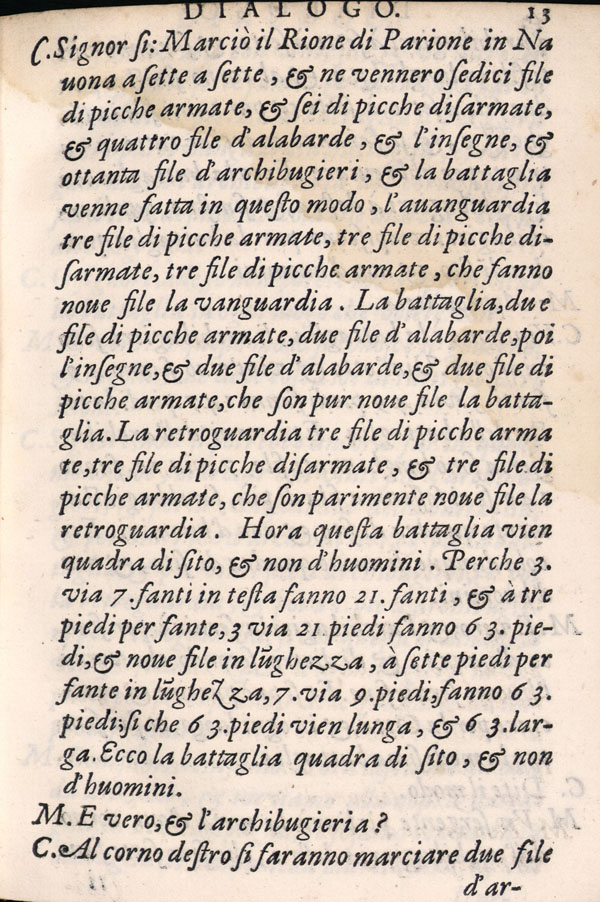 DIALOGO. 13
C. Signor ſi: Marciò il Rione di Parione in Na
uona a ſette a ſette, & ne vennero ſedici file
di picche armate, & ſei di picche diſarmate,
& quattro file d'alabarde, & l'inſegne, &
ottanta file d'archibugieri, & la battaglia
venne fatta in queſto modo, l'auanguardia
tre file di picche armate, tre file di picche di-
ſarmate, tre file di picche armate, che fanno
noue file la vanguardia. La battaglia, due
file di picche armate, due file d'alabarde, poi
l'inſegne, & due file d'alabarde, & due file di
picche armate, che ſon pur noue file la batta-
glia. La retroguardia tre file di picche arma
te, tre file di picche diſarmate, & tre file di
picche armate, che ſon parimente noue file la
retroguardia. Hora queſta battaglia vien
quadra di ſito, & non d'huomini. Perche 3.
via 7. fanti in teſta fanno 21. fanti, & à tre
piedi per fante, 3 via 21 piedi fanno 63. pie-
di, & noue file in lũghezza, à ſette piedi per
fante in lũghezza, 7. via 9. piedi, fanno 63.
piedi; ſi che 63. piedi vien lunga, & 63. lar-
ga. Ecco la battaglia quadra di ſito, & non
d'huomini.
M. E vero, & l'archibugieria?
C. Al corno deſtro ſi faranno marciare due file
d'ar-